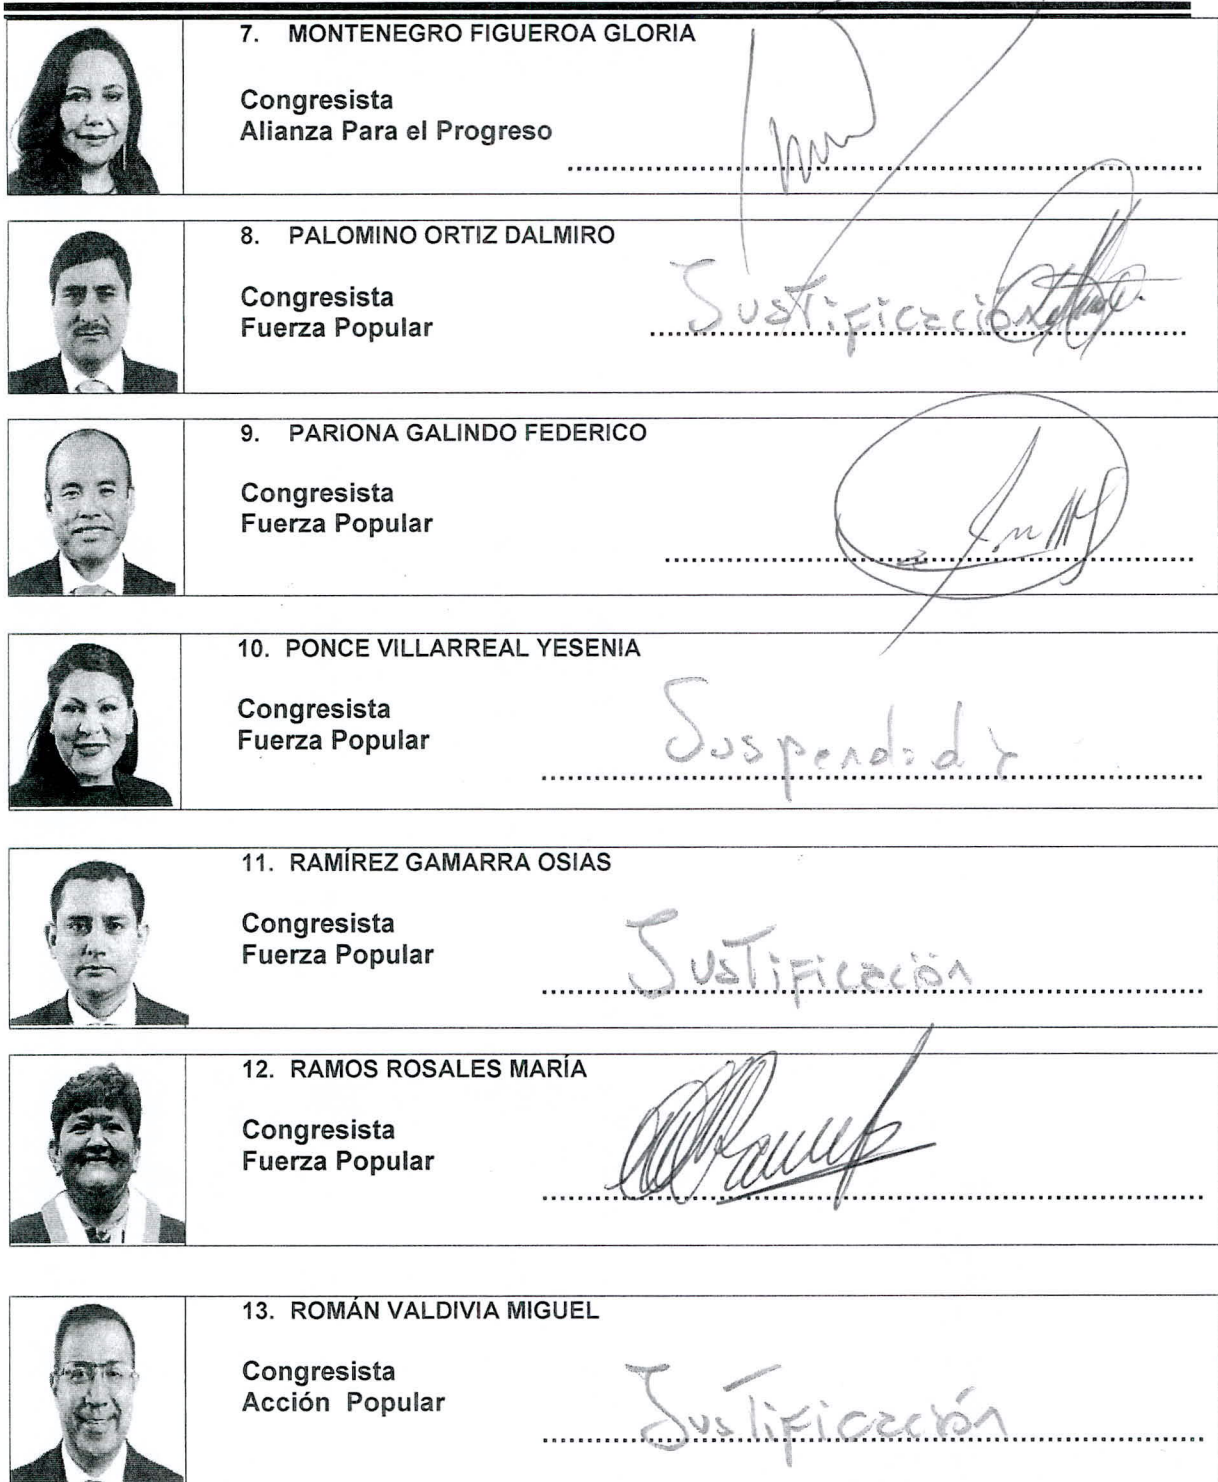 7. MONTENEGRO FIGUEROA GLORIA
Congresista
Alianza Para el Progreso
8. PALOMINO ORTIZ DALMIRO
Congresista
Fuerza Popular
Justificación
9. PARIONA GALINDO FEDERICO
Congresista
Fuerza Popular
10. PONCE VILLARREAL YESENIA
Congresista
Fuerza Popular
Suspendida
11. RAMÍREZ GAMARRA OSIAS
Congresista
Fuerza Popular
Justificación
12. RAMOS ROSALES MARÍA
Congresista
Fuerza Popular
13. ROMÁN VALDIVIA MIGUEL
Congresista
Acción Popular
Justificación